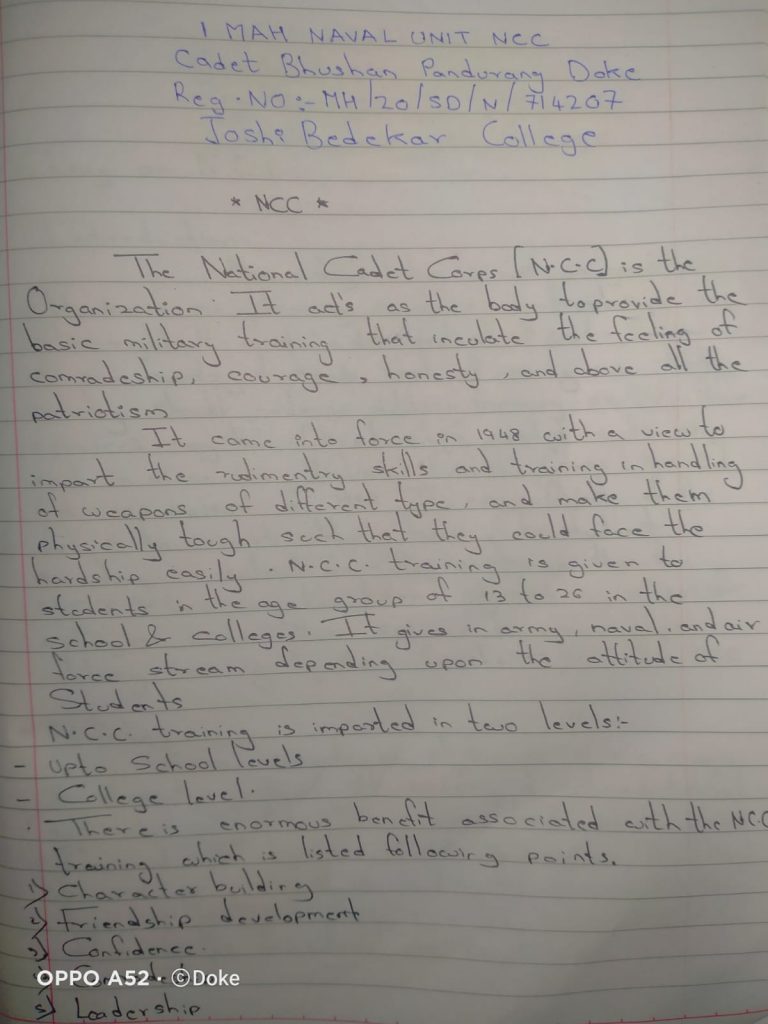 1 MAH NAVAL UNIT NCC
Cadet Bhushan Pandurang Doke
Reg. NO :- MH/20/SD/N/714207
Joshi Bedekar College
* NCC *
The National Cadet Corps [N.C.C] is the
Organization. It act's as the body to provide the
basic military training that inculate the feeling of
comradeship, courage, honesty, and above all the
patriotism
It came into force in 1948 with a view to
impart the rudimentry skills and training in handling
of weapons of different type, and make them
physically tough such that they could face the
hardship easily. N.C.C. training is given to
students in the age group of 13 to 26 in the
school & colleges. It gives in army, naval. and air
force stream depending upon the attitude of
Students
N.C.C. training is imparted in two levels:-
- Upto School levels
- College level.
. There is enormous benefit associated with the NCC
training which is listed following points.
1) Character building
2) Friendship development
3) Confidence.
OPPO A52 · ©Doke
5) Leadership